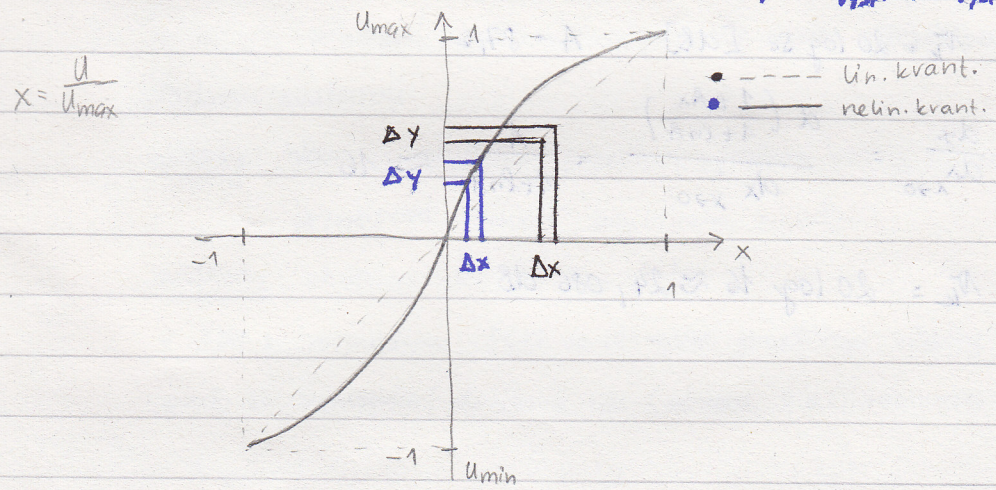 Umax
1
x = U / Umax
lin. kvant.
nelin. kvant.
Δy
Δy
-1
Δx
Δx
x
1
-1
Umin